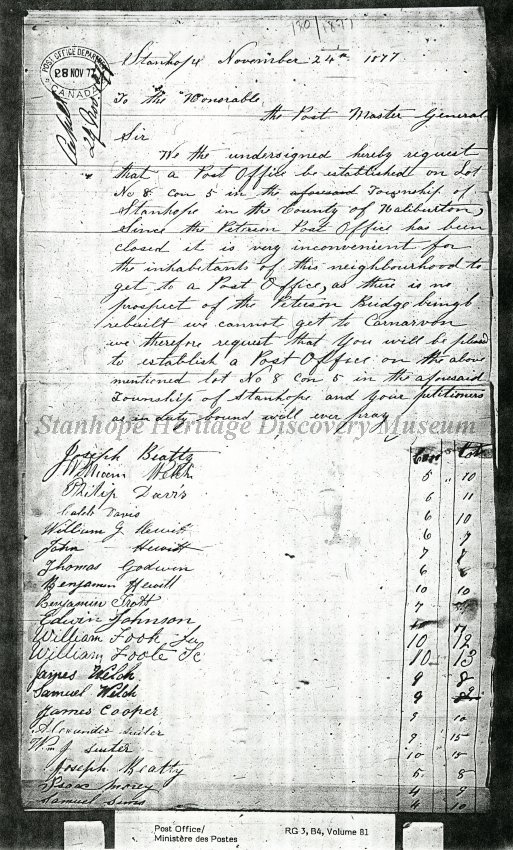 180/1877
POST OFFICE DEPARTMENT
28 NOV 77
CANADA
Stanhope November 24th 1877
To the Honorable
the Post Master General
Sir
We the undersigned hereby request
that a Post Office be established on Lot
No 8 Con 5 in the aforesaid Township of
Stanhope in the County of Haliburton,
Since the Peterson Post Office has been
closed it is very inconvenient for
the inhabitants of this neighbourhood to
get to a Post Office, as there is no
prospect of the Peterson Bridge being
rebuilt we cannot get to Carnarvon
we therefore request that you will be pleased
to establish a Post Office on the above
mentioned lot No 8 Con 5 in the aforesaid
Township of Stanhope and your petitioners
as in duty bound will ever pray
Stanhope Heritage Discovery Museum
Con Lots
Joseph Beatty
William Welch 5 " 10
Philip Davis 6 11
Caleb Davis 6 10
William J Hewitt 6 9
John Hewitt 7 8
Thomas Godwin 6
Benjamin Hewitt 10 10
Benjamin Trott 7
Edwin Johnson 7
William Foot Ju 10 12
William Foote Se 10 13
James Welch 9 8
Samuel Welch 9
James Cooper 9 10
Alexander Suiter 9 15
Wm J Suiter 10 15
Joseph Beatty 5 8
Isaac Morey 4 9
Samuel 4 10
Post Office/
Ministère des Postes
RG 3, B4, Volume 81